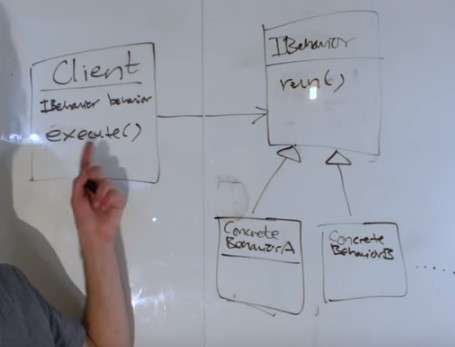 Client
IBehavior behavior
execute()
IBehavior
run()
Concrete
BehaviorA
Concrete
BehaviorB